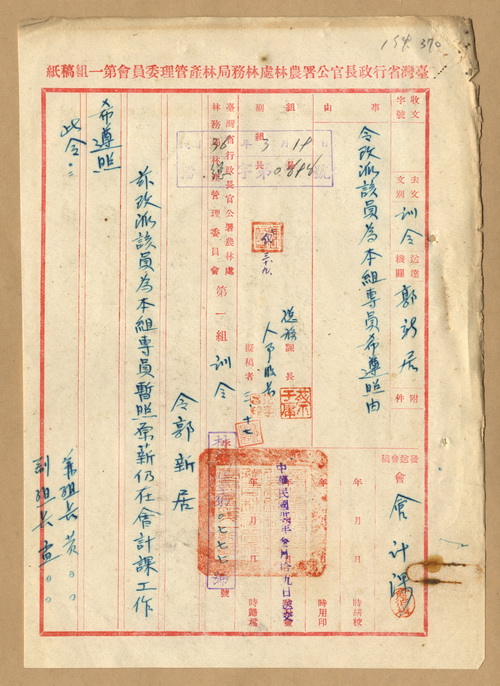 194. 370
臺灣省行政長官公署農林處林務局林產管理委員會第一組稿紙
收文 字號
去文 文別 訓令 送達機關 郭新居 附件
事由
令改派該員為本組專員希遵照由
會 會計課
組長
副組長
課長
擬稿者
年 月 日 時繕校
年 月 日 時用印
中華民國
年 月 日 時歸檔
36年3月19日
字第 號
臺灣省行政長官公署農林處
林務局林產管理委員會 第一組 訓令
令郭新居
茲改派該員為本組專員暫照原薪仍在會計課工作
希遵照
此令
兼組長黃○○
副組長